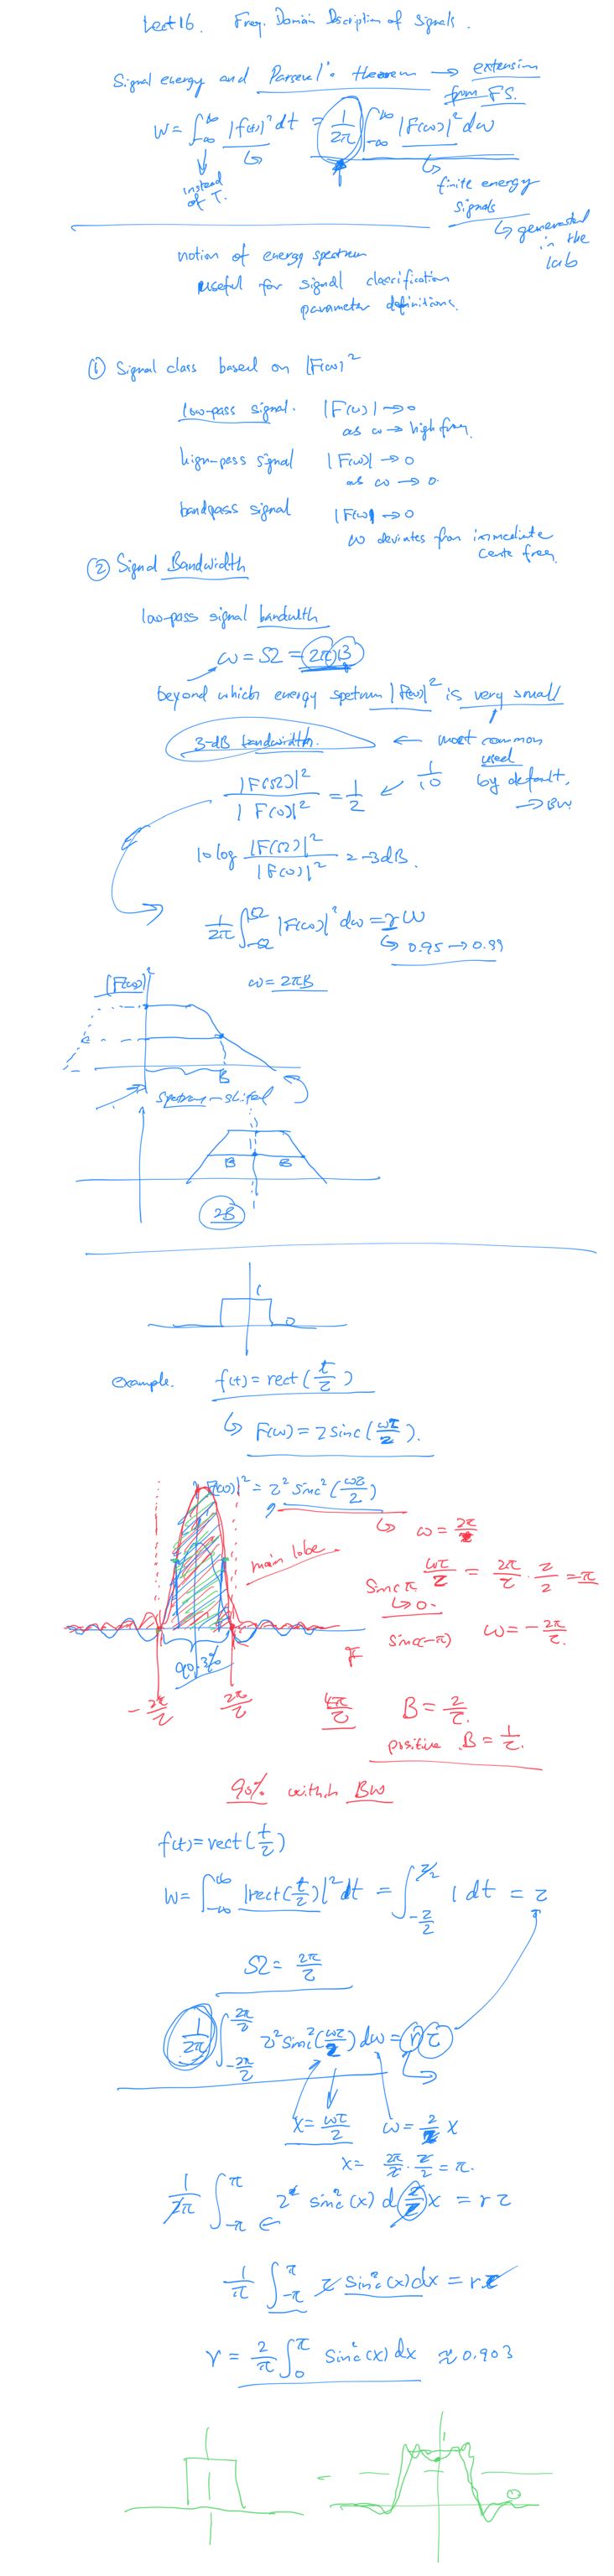 Lect 16. Freq. Domain Discription of Signals.
Signal energy and Parseval's theorem → extension
from FS.
W = ∫_{-∞}^{∞} |f(t)|² dt = 1/2π ∫_{-∞}^{∞} |F(ω)|² dω
instead
of T.
finite energy
signals
↳ generated
in the
lab
notion of energy spectrum
useful for signal classification
parameter definitions.
① Signal class based on |F(ω)|²
low-pass signal. |F(ω)| → 0
as ω → high freq.
high-pass signal |F(ω)| → 0
as ω → 0.
bandpass signal |F(ω)| → 0
ω deviates from immediate
cente freq.
② Signal Bandwidth
low-pass signal bandwidth
ω = Ω = 2πB
beyond which energy spetrum |F(ω)|² is very small
3-dB bandwidth. ← most common
used
by default.
→ BW.
|F(Ω)|² / |F(0)|² = 1/2 ↙ 1/10
10 log |F(Ω)|² / |F(0)|² = -3dB.
1/2π ∫_{-Ω}^{Ω} |F(ω)|² dω = rW
↳ 0.95 → 0.99
|F(ω)|²
ω = 2πB
B
Spectrum-shifted
B B
2B
1
0
example. f(t) = rect(t/τ)
↳ F(ω) = τ sinc(ωτ/2).
|F(ω)|² = τ² sinc²(ωτ/2)
↳ ω = 2π/τ
main lobe
ωτ/2 = 2π/τ · τ/2 = π
Sinc π
↳ 0.
sinc(-π) ω = -2π/τ.
90.3%
-2π/τ 2π/τ 4π/τ
B = 2/τ.
positive B = 1/τ.
90% within BW
f(t) = rect(t/τ)
W = ∫_{-∞}^{∞} |rect(t/τ)|² dt = ∫_{-τ/2}^{τ/2} 1 dt = τ
Ω = 2π/τ
1/2π ∫_{-2π/τ}^{2π/τ} τ² sinc²(ωτ/2) dω = r τ
x = ωτ/2 ω = 2/τ x
x = 2π/τ · τ/2 = π.
1/2π ∫_{-π}^{π} τ² sinc²(x) d(2/τ)x = r τ
1/π ∫_{-π}^{π} τ sinc²(x) dx = r τ
r = 2/π ∫_{0}^{π} sinc²(x) dx ≈ 0.903